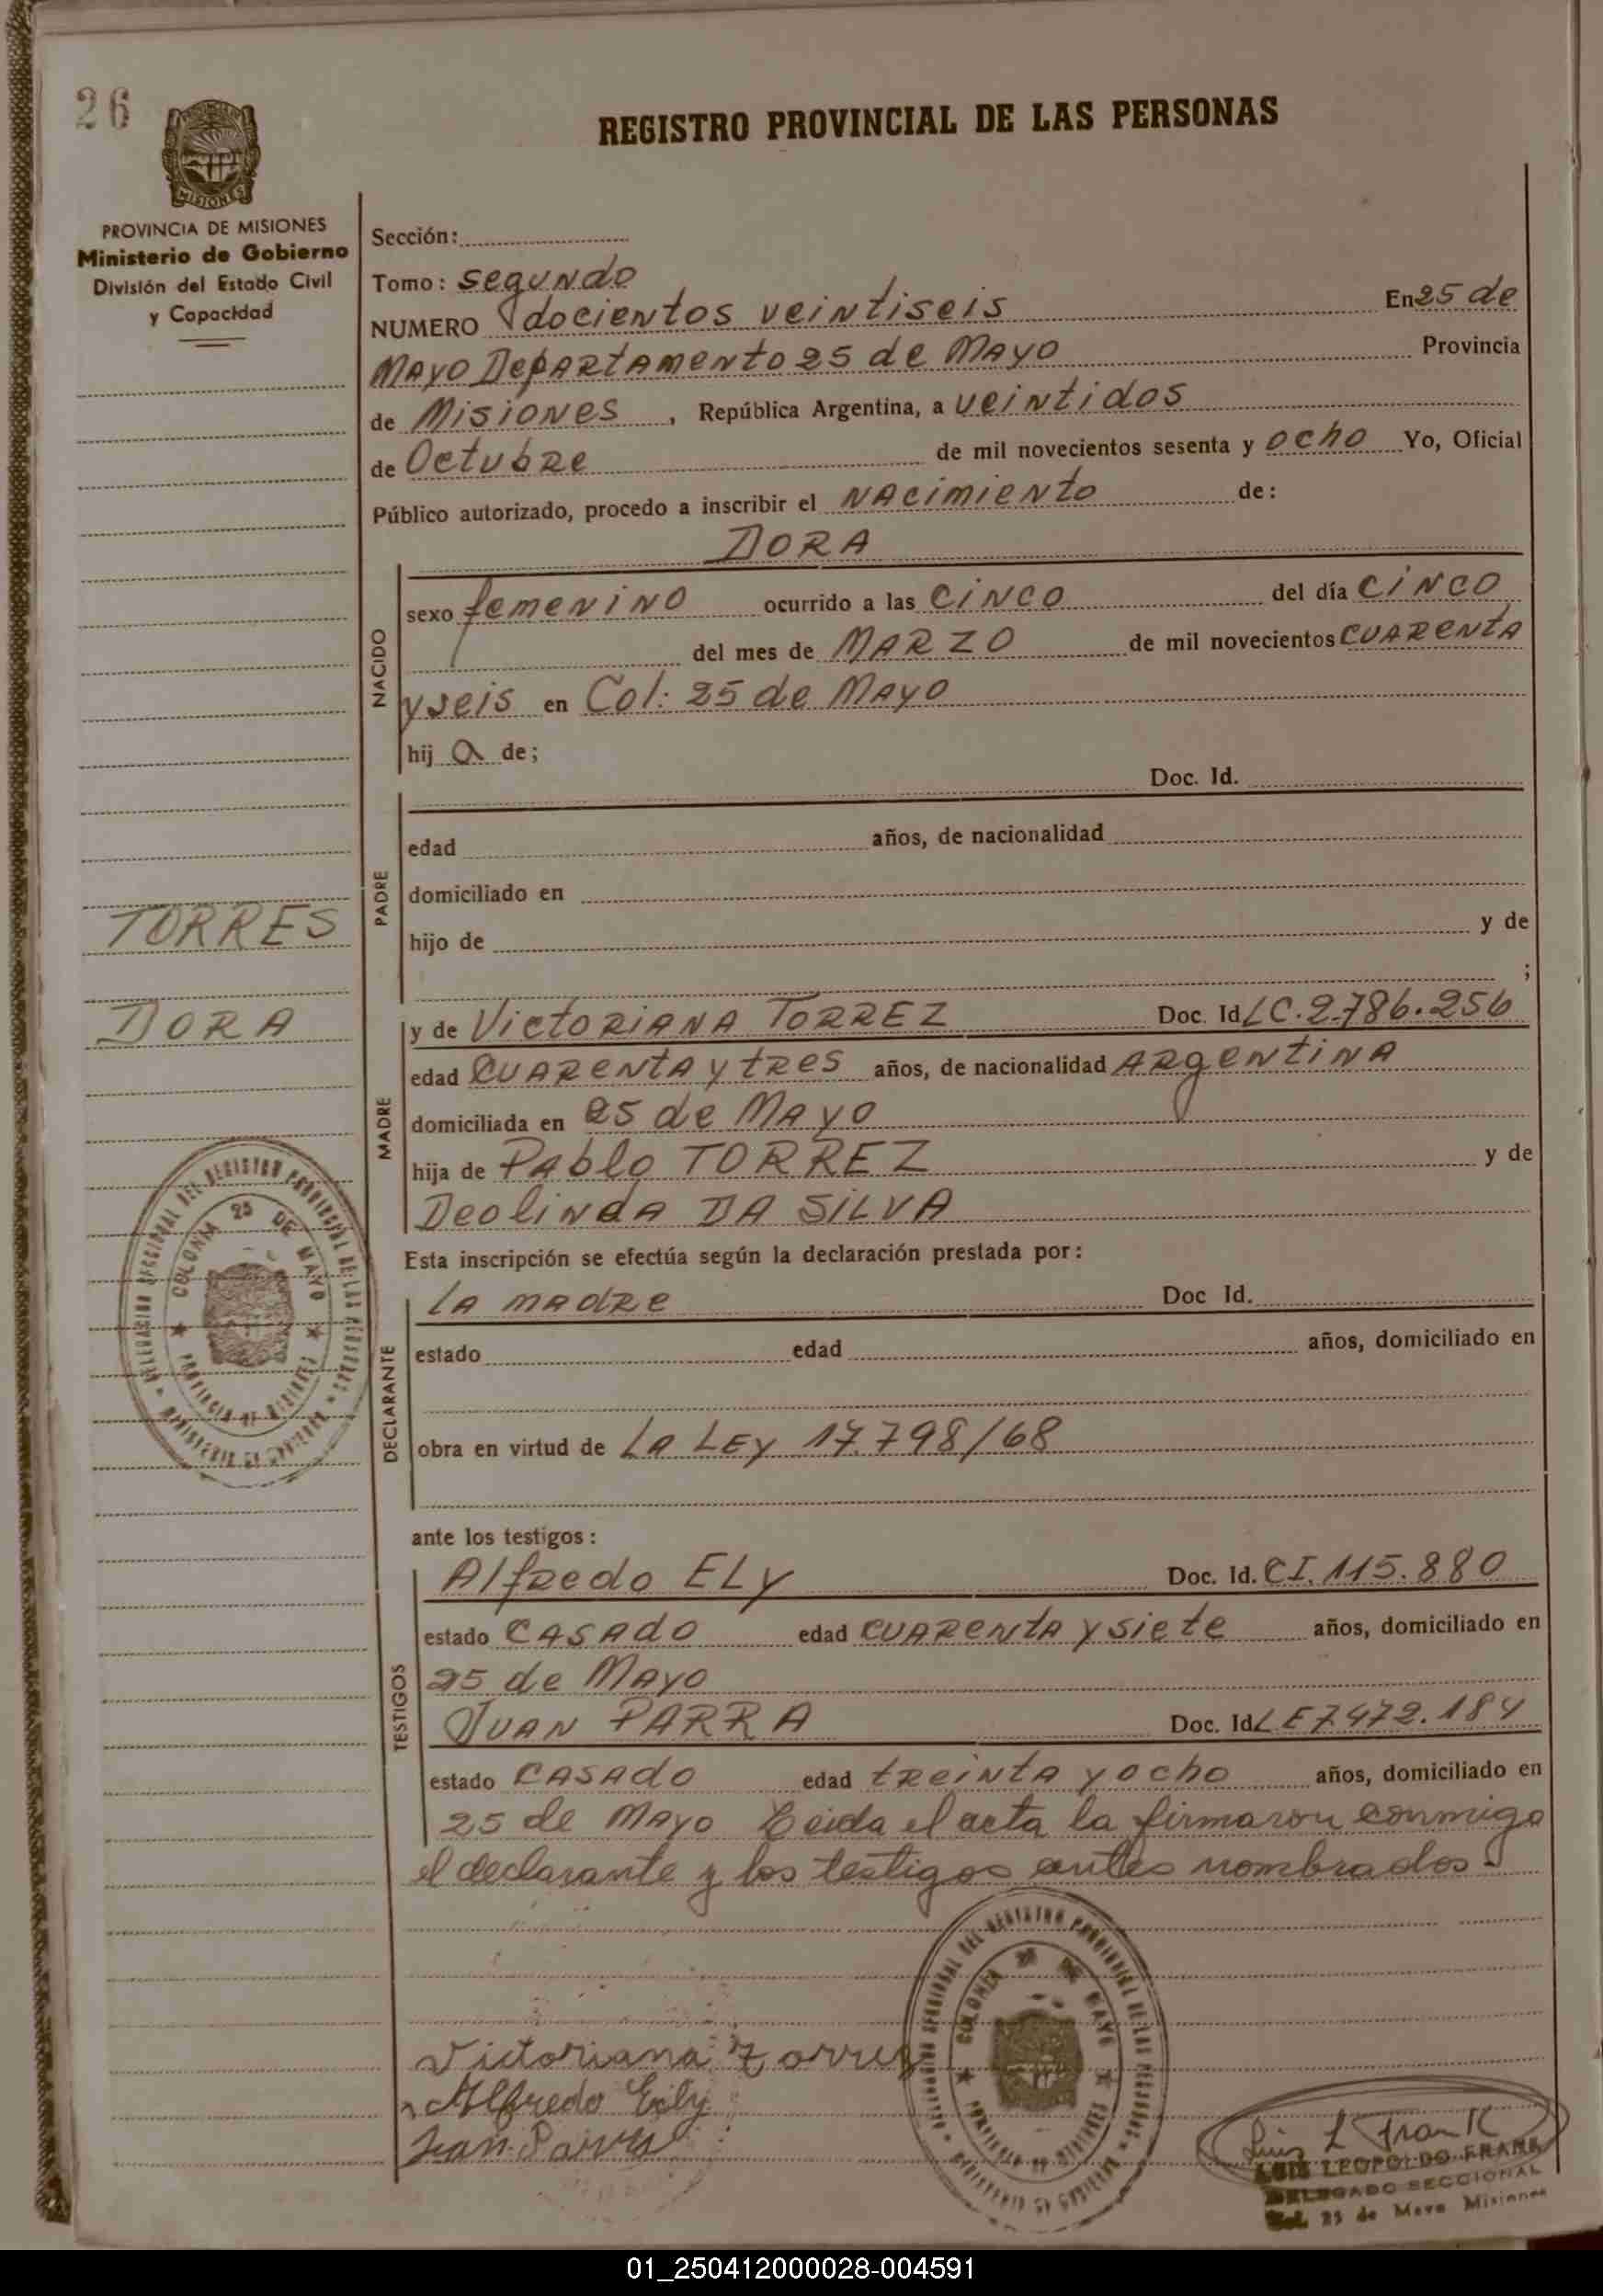 26
REGISTRO PROVINCIAL DE LAS PERSONAS
MISIONES
PROVINCIA DE MISIONES
Ministerio de Gobierno
División del Estado Civil
y Capacidad
Sección:
Tomo: segundo
NUMERO docientos veintiseis En 25 de
Mayo Departamento 25 de Mayo Provincia
de Misiones, República Argentina, a veintidos
de Octubre de mil novecientos sesenta y ocho Yo, Oficial
Público autorizado, procedo a inscribir el nacimiento de:
DORA
NACIDO
sexo femenino ocurrido a las cinco del día cinco
del mes de MARZO de mil novecientos cuarenta
y seis en Col: 25 de Mayo
hij a de;
Doc. Id.
PADRE
edad años, de nacionalidad
domiciliado en
hijo de y de
;
TORRES
DORA
MADRE
y de Victoriana TORREZ Doc. Id LC. 2.786.256
edad cuarenta y tres años, de nacionalidad Argentina
domiciliada en 25 de Mayo
hija de Pablo TORREZ y de
Deolinda DA SILVA
DELEGACION SECCIONAL DEL REGISTRO PROVINCIAL DE LAS PERSONAS
COLONIA 25 DE MAYO
PROVINCIA DE MISIONES
MINISTERIO DE GOBIERNO
Esta inscripción se efectúa según la declaración prestada por:
DECLARANTE
la madre Doc Id.
estado edad años, domiciliado en
obra en virtud de La LEY 17.798/68
ante los testigos:
TESTIGOS
Alfredo ELY Doc. Id. CI. 115.880
estado casado edad cuarenta y siete años, domiciliado en
25 de Mayo
Juan PARRA Doc. Id LE 7.472.184
estado casado edad treinta y ocho años, domiciliado en
25 de Mayo Leida el acta la firmaron conmigo
el declarante y los testigos antes nombrados.
DELEGACION SECCIONAL DEL REGISTRO PROVINCIAL DE LAS PERSONAS
COLONIA 25 DE MAYO
PROVINCIA DE MISIONES
MINISTERIO DE GOBIERNO
Victoriana Torrez
Alfredo Ely
Juan Parra
Luis L Frank
LUIS LEOPOLDO FRANK
DELEGADO SECCIONAL
Col. 25 de Mayo Misiones
01_250412000028-004591